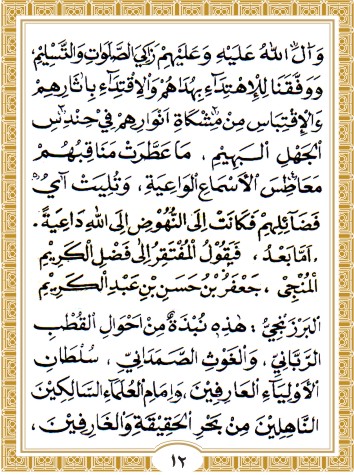 وَآلُ اللهُ عَلَيْهِ وَعَلَيْهِمْ زَكِيَّ الصَّلَوَاتِ وَالتَّسْلِيمْ
وَوَفَّقَنَا لِلْإِهْتِدَآءِ بِهُدَاهُمْ وَالْإِقْتِدَآءِ بِاٰثَارِهِمْ
وَالْإِقْتِبَاسِ مِنْ مِشْكَاةِ اَنْوَارِهِمْ فِيْ حِنْدِسِ
الْجَهْلِ الْبَهِيْمِ . مَا عَطَّرَتْ مَنَاقِبُهُمْ
مَعَاطِسَ الْأَسْمَاعِ الْوَاعِيَةِ ، وَتُلِيَتْ اٰيُ
فَضَآئِلِهِمْ فَكَانَتْ اِلَى النُّهُوْضِ اِلَى اللهِ دَاعِيَةً .
. اَمَّا بَعْدُ ، فَيَقُوْلُ الْمُفْتَقِرُ اِلَى فَضْلِ الْكَرِيْمِ
الْمُنْجِيْ ، جَعْفَرُ بْنُ حَسَنِ بْنِ عَبْدِ الْكَرِيْمِ
الْبَرْزَنْجِيُّ : هٰذِهِ نُبْذَةٌ مِنْ اَحْوَالِ الْقُطْبِ
الرَّبَّانِيِّ ، وَالْغَوْثِ الصَّمَدَانِيِّ ، سُلْطَانِ
الْأَوْلِيَآءِ الْعَارِفِيْنَ ، وَاِمَامِ الْعُلَمَآءِ السَّالِكِيْنَ
النَّاهِلِيْنَ مِنْ بَحْرِ الْحَقِيْقَةِ وَالْغَارِفِيْنَ ،
١٢